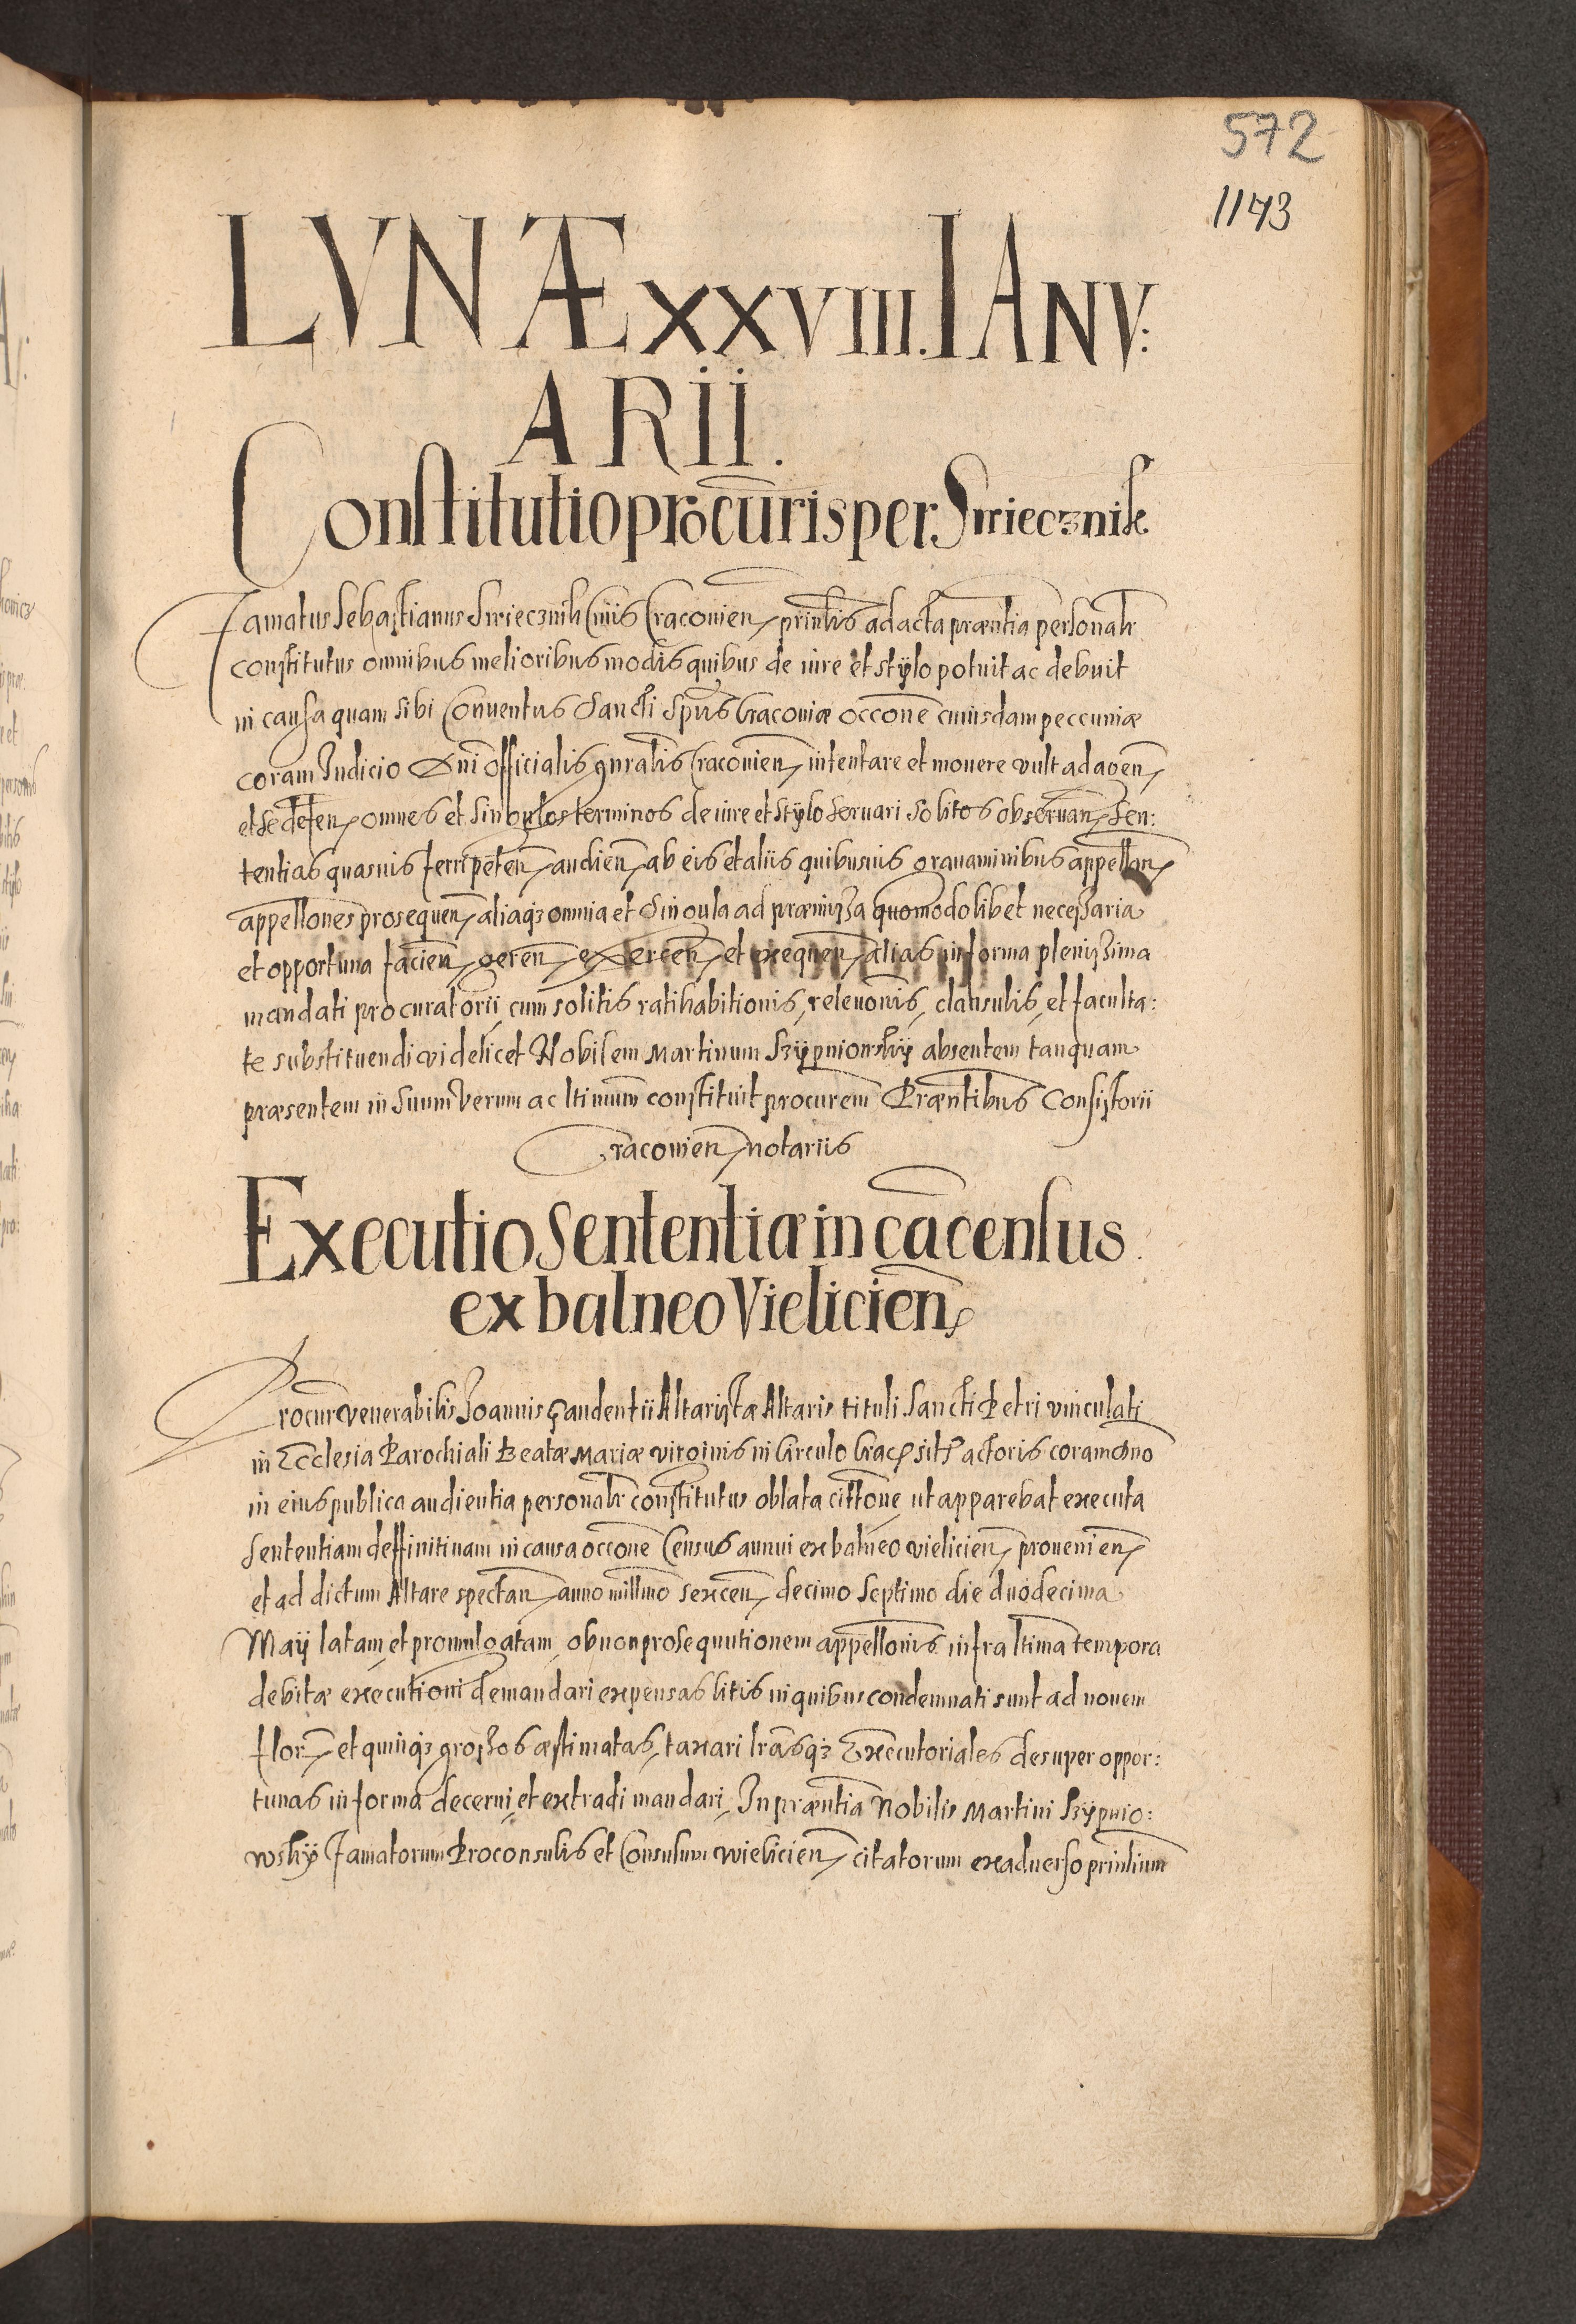 572
1143
LVNÆ XXVIII. IANV:
ARii.
Constitutio procuris per Smiecznik
Famatus Sebastianus Smiecznik Civis Cracovien, prinlis ad acta præntia personalr
constitutus omnibus melioribus modis quibus de iure et stÿlo potuit ac debuit
in causa quam sibi Conventus Sancti Spus Cracoviæ occone cuiusdam peccuniæ
coram Judicio Dni officialis gnralis Cracovien, intentare et movere vult ad agen,
et se defen, omnes et singulos terminos de iure et stÿlo servari solitos observan, Sen:
tentias quasvis ferri peten, audien, ab eis et aliis quibusvis gravaminibus appellan,
appellones prosequen, aliaqꝫ omnia et Singula ad præmissa quomodolibet necessaria
et opportuna facien, geren, exercen, et exequen, alias in forma plenissima
mandati procuratorii, cum solitis ratihabitionis, relevonis, clausulis, et faculta:
te substituendi videlicet Nobilem Martinum Szÿpniowskÿ absentem tanquam
præsentem in Suum Verum ac ltimum constituit procurem Præntibus Consistorii
Cracovien, notariis
Executio Sententiæ in ca census
ex balneo Vielicien,
Procur venerabilis Joannis Gaudentii Altaristæ Altaris tituli Sancti Petri vinculati
in Ecclesia Parochiali Beatæ Mariæ virginis in Circulo Crac, sit, actoris coram Dno
in eius publica audientia personalr constitutus oblata cittone ut apparebat executa
Sententiam deffinitivam in causa occone Census annui ex balneo vielicien, provenien,
et ad dictum Altare spectan, anno millmo sexcen, decimo Septimo die duodecima
Maÿ latam, et promulgatam, ob non prosequutionem appellonis infra ltima tempora
debitæ executioni demandari expensas litis in quibus condemnati sunt ad novem
flor, et quinqꝫ grossos æstimatas, taxari lrasqꝫ Executoriales desuper oppor:
tunas in forma decerni, et extradi mandari, In præntia Nobilis Martini Szÿpnio:
wskÿ Famatorum Proconsulis et Consulum Wielicien, citatorum ex adverso prinlium